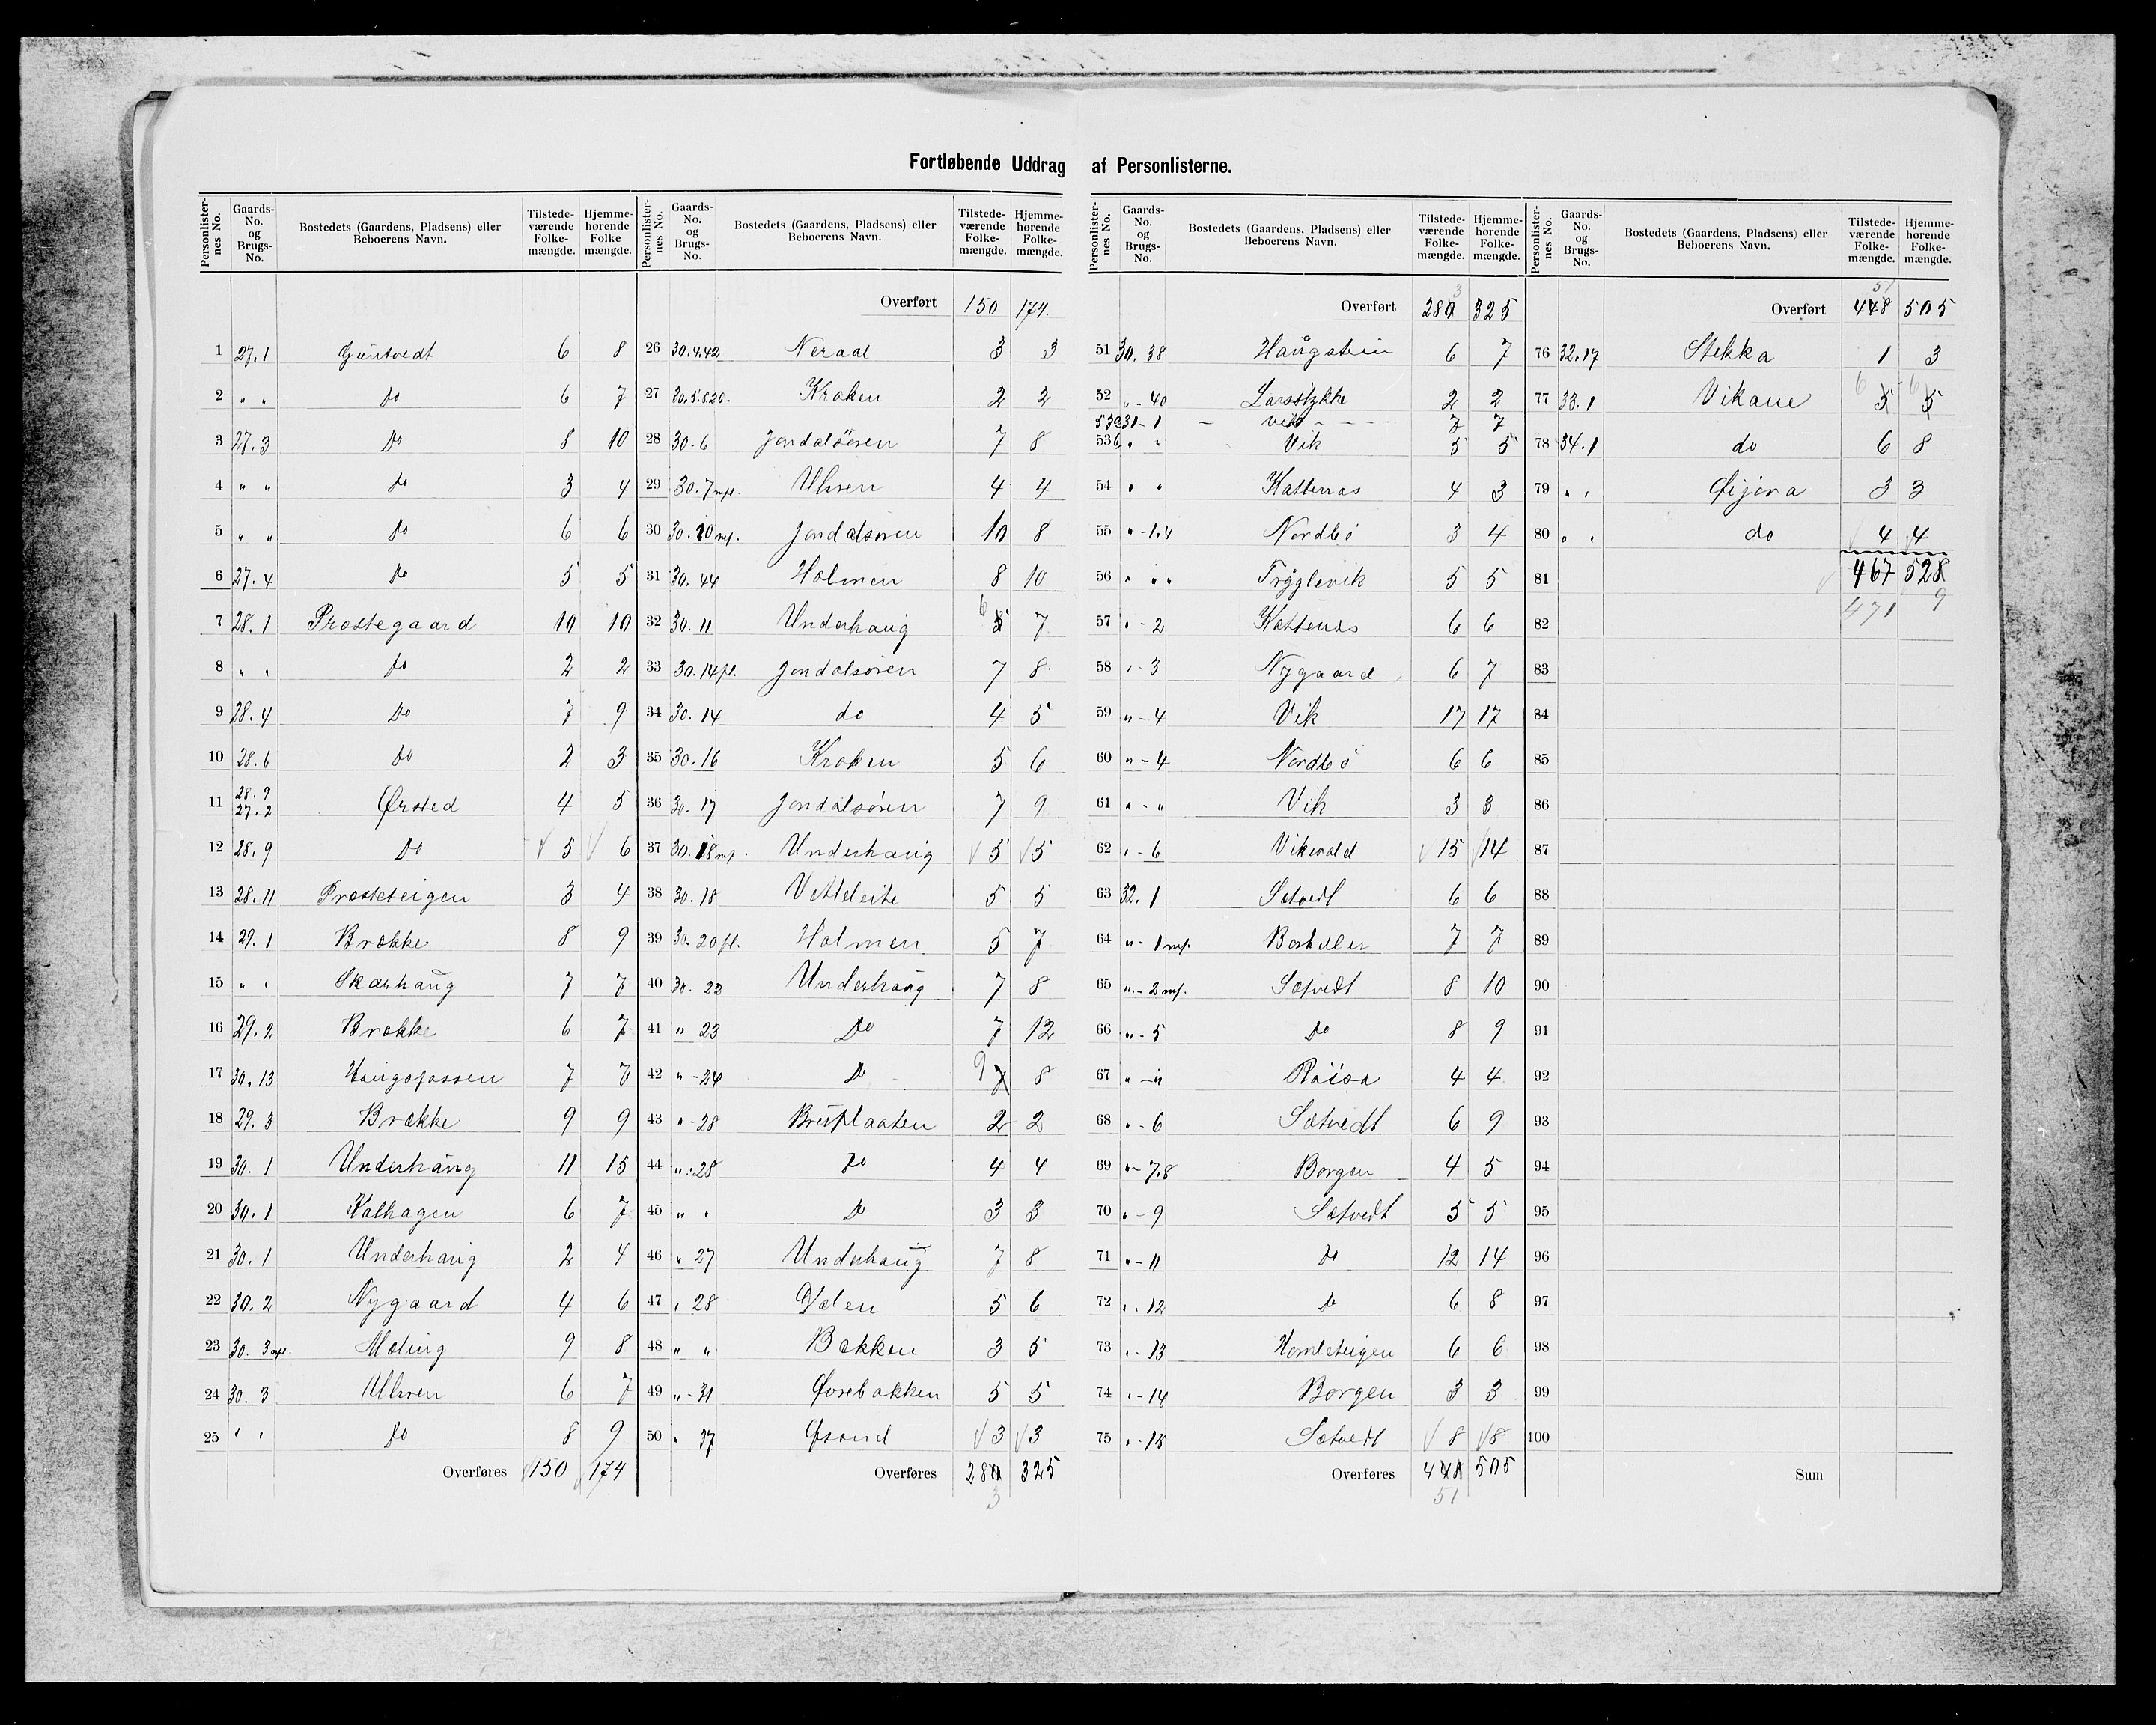 Fortløbende Uddrag af Personlisterne.
Personlisternes No. Gaards-No. og Brugs-No. Bostedets (Gaardens, Pladsens) eller Beboerens Navn. Tilstedeværende Folkemængde. Hjemmehørende Folkemængde.
1 27.1 6 8
2 " " Do 6 7
3 27.3 Do 8 10
4 " " Do 3 4
5 " " Do 6 6
6 27.4 Do 5 5
7 28.1 Præstegaard 10 10
8 " " Do 2 2
9 28.4 Do 7 9
10 28.6 Do 2 3
11 28.9 27.2 Ørsted 4 5
12 28.9 Do 5 6
13 28.11 Præsteteigen 3 4
14 29.1 Brække 8 9
15 " " Skarhaug 7 7
16 29.2 Brække 6 7
17 30.13 7 7
18 29.3 Brække 9 9
19 30.1 Underhaug 11 15
20 30.1 Kalhagen 6 7
21 30.1 Underhaug 2 4
22 30.2 Nygaard 4 6
23 30.3 mfl. Mæling 9 8
24 30.3 Uhren 6 7
25 " " Do 8 9
Overføres 150 174
Personlisternes No. Gaards-No. og Brugs-No. Bostedets (Gaardens, Pladsens) eller Beboerens Navn. Tilstedeværende Folkemængde. Hjemmehørende Folkemængde.
Overført 150 174.
26 30.4.42 Neraal 3 3
27 Kroken 2 2
28 30.6 Jondalsören 7 8
29 30.7 mfl. Uhren 4 4
30 30.10 mf. Jondalsøren 10 8
31 30.44 Holmen 8 10
32 30.11 Underhaug 6 7
33 30.14 fl. Jondalsøren 7 8
34 30.14 do 4 5
35 30.16 Kroken 5 6
36 30.17 Jondalsøren 7 9
37 30.18 mf. Underhaug 5 5
38 30.18 Vetleleite 5 5
39 30.20 fl. Holmen 5 7
40 30.22 Underhaug 7 8
41 " 23 Do 7 12
42 " - 24 Do 9 7 8
43 " - 28 2 2
44 " - 28 Do 4 4
45 " " Do 3 3
46 " 27 Underhaug 7 8
47 " 28 Dalen 5 6
48 " " Bakken 3 5
49 " - 31 Øvrebakken 5 5
50 " 37 Øsond 3 3
Overføres 280 325
3
Personlisternes No. Gaards-No. og Brugs-No. Bostedets (Gaardens, Pladsens) eller Beboerens Navn. Tilstedeværende Folkemængde. Hjemmehørende Folkemængde.
3
Overført 280 325
51 30.38 Haugstein 6 7
52 " - 40 Larsstykke 2 2
53a 31-1 Vik 7 7
53b " " Vik 5 5
54 " " Kattenæs 4 3
55 " - 1.4 Nordbö 3 4
56 " " " Tryglevik 5 5
57 " - 2 Kattenæs 6 6
58 " - 3 Nygaard 6 7
59 " - 4 Vik 17 17
60 " - 4 Nordbö 6 6
61 " - " Vik 3 3
62 " - 6 Vikevold 15 14
63 32.1 Sætvedt 6 6
64 " - 1 mf. Barheller 7 7
65 " - 2 mf. Sætvedt 8 10
66 " - 5 Do 8 9
67 " - " Röisa 4 4
68 " - 6 Sætvedt 6 9
69 " - 7.8 Borgen 4 5
70 " - 9 Sætvedt 5 5
71 " - 11 Do 12 14
72 " - 12 Do 6 8
73 " - 13 6 6
74 " - 14 Borgen 3 3
75 " - 15 Sætvedt 8 8
Overføres 448 505
51
Personlisternes No. Gaards-No. og Brugs-No. Bostedets (Gaardens, Pladsens) eller Beboerens Navn. Tilstedeværende Folkemængde. Hjemmehørende Folkemængde.
51
Overført 448 505
76 32.17 Stekka 1 3
77 33.1 Vikane 6 5 6 5
78 34.1 do 6 8
79 " " 3 3
80 " " do 4 4
81 467 528
471 9
82
83
84
85
86
87
88
89
90
91
92
93
94
95
96
97
98
99
100
Sum